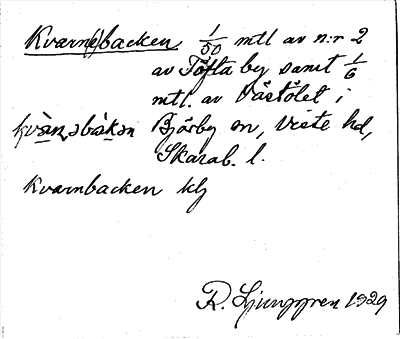 Kvarn(e)backen 1/50 mtl av n:r 2
av Töfta by samt 1/6
mtl. av Västölet i
kvànəbákən Bjärby sn, Viste hd,
Skarab. l.
Kvarnbacken klj
R. Ljunggren 1929